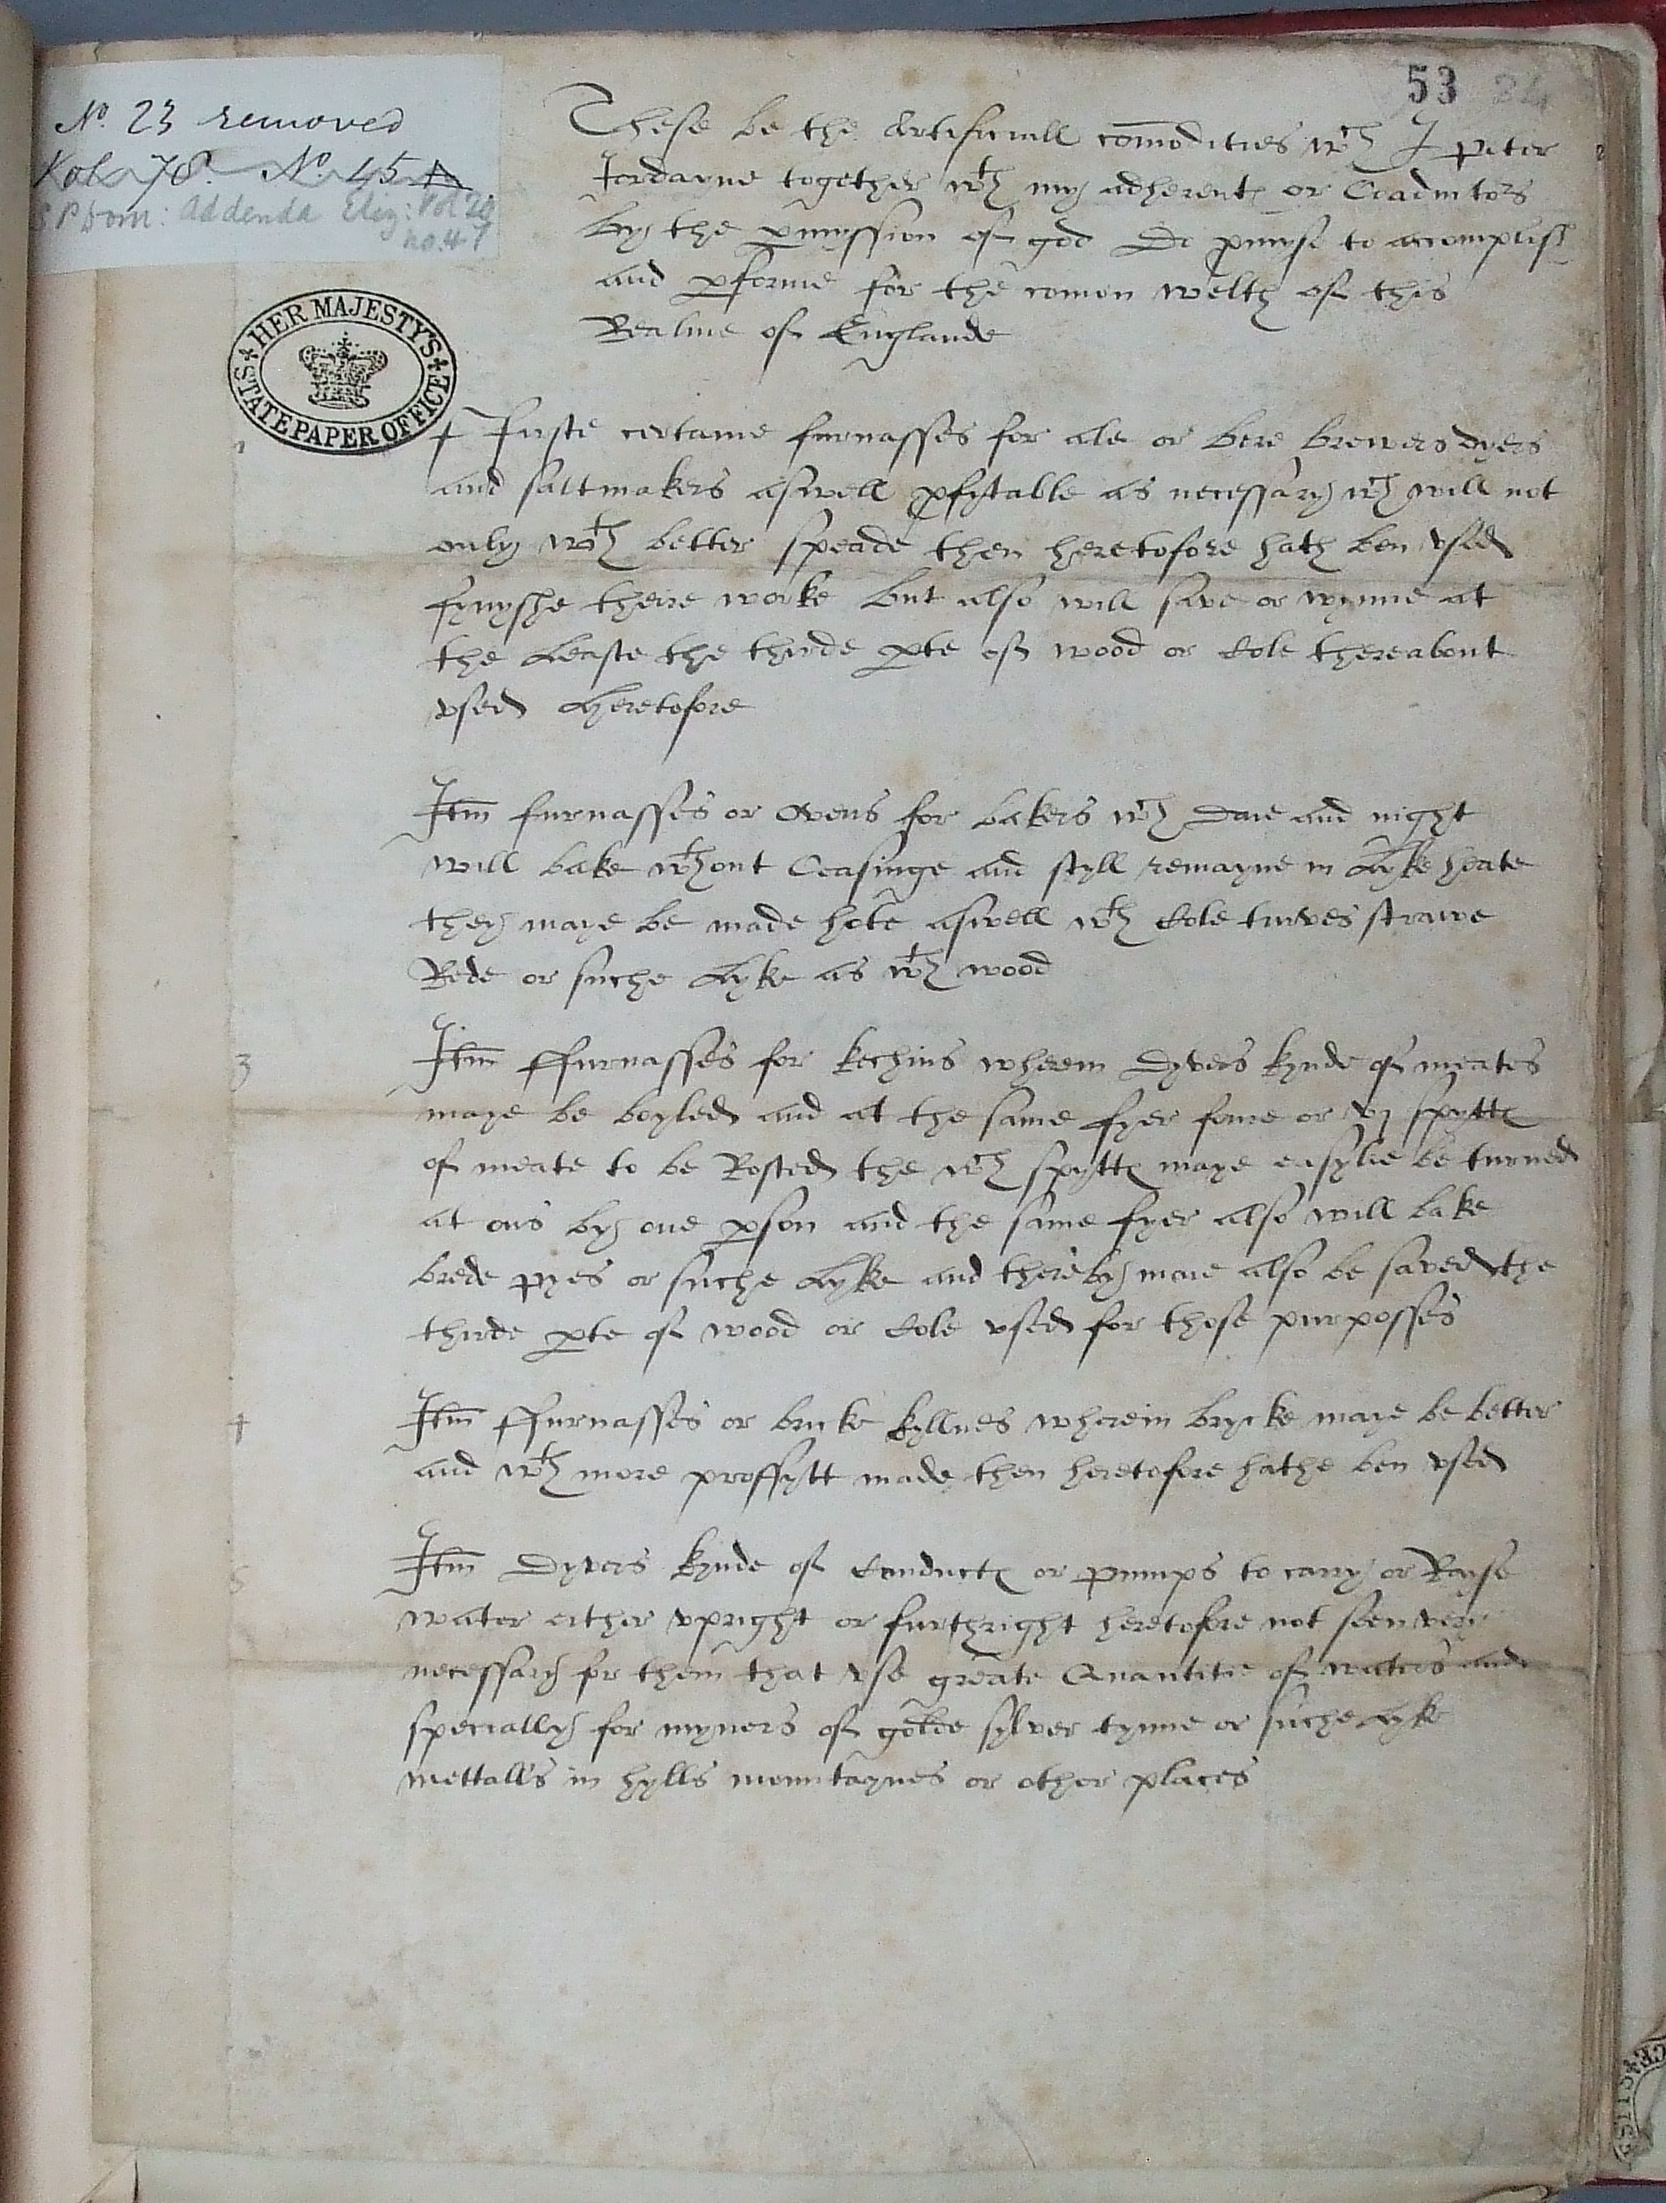 53 24
No. 23 removed
Vol 78. No. 45
S P Dom: Addenda Eliz: Vol 20
no. 47
HER MAJESTY'S STATE PAPER OFFICE
These be the Artificiall com̄odities wch I Peter
Jordayne together wth my adherentꝭ or Coadiutors
by the pmyssion of god Do pmyse to accomplish
and pforme for the comon welth of this
Realme of Englande
1 Firste certaine furnasses for ale or bere brewers dyers
and saltmakers aswell pfytable as necessary wch will not
only wth better speade then heretofore hath ben vsed
fynyshe theire worke but also will save or wynne at
the Leaste the thirde pte of wood or Cole thereabout
vsed heretofore
Itm̄ furnasses or Ovens for bakers wch Daie and night
will bake wthout Ceasinge and styll remayne in Lyke heate
they maye be made hote aswell wth Cole turves strawe
Rede or suche Lyke as wth wood
3 Itm̄ ffurnasses for kechins wherein Dyvers kynde of meates
maye be boyled and at the same fyer fowre or vj spyttꝭ
of meate to be Rosted the wch spyttꝭ maye easylie be turned
at ons by one pson and the same fyer also will bake
brede pyes or suche Lyke and thereby maie also be saved the
thirde pte of wood or Cole vsed for those purposses
4 Itm̄ ffurnasses or bricke kyllnes wherein brycke maye be better
and wth more proffytt made then heretofore hathe ben vsed
5 Itm̄ Dyvers kynde of Conductꝭ or pumps to carry or Rayse
water either vpright or furthright heretofore not seen very
necessary for them that vse greate Quantitie of waters and
specially for myners of golde sylver tynne or suche Lyke
mettalls in hylls mountaynes or other places